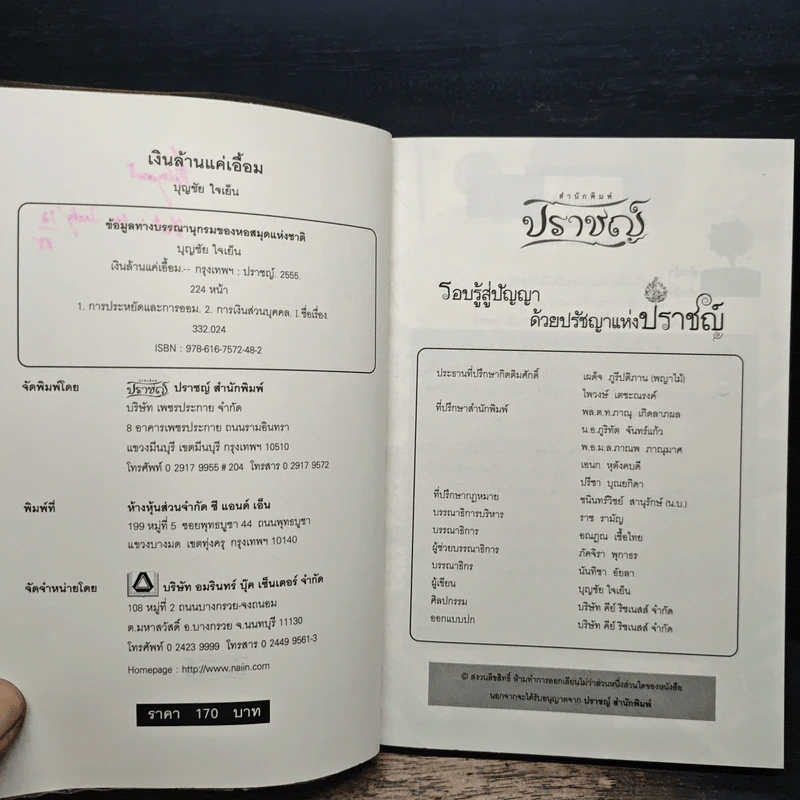 เงินล้านแค่เอื้อม
บุญชัย ใจเย็น
ข้อมูลทางบรรณานุกรมของหอสมุดแห่งชาติ
บุญชัย ใจเย็น
เงินล้านแค่เอื้อม.-- กรุงเทพฯ : ปราชญ์. 2555.
224 หน้า
1. การประหยัดและการออม. 2. การเงินส่วนบุคคล. I.ชื่อเรื่อง.
332.024
ISBN : 978-616-7572-48-2
จัดพิมพ์โดย ปราชญ์ ปราชญ์ สำนักพิมพ์
บริษัท เพชรประกาย จำกัด
8 อาคารเพชรประกาย ถนนรามอินทรา
แขวงมีนบุรี เขตมีนบุรี กรุงเทพฯ 10510
โทรศัพท์ 0 2917 9955 # 204 โทรสาร 0 2917 9572
พิมพ์ที่ ห้างหุ้นส่วนจำกัด ซี แอนด์ เอ็น
199 หมู่ที่ 5 ซอยพุทธบูชา 44 ถนนพุทธบูชา
แขวงบางมด เขตทุ่งครุ กรุงเทพฯ 10140
จัดจำหน่ายโดย บริษัท อมรินทร์ บุ๊ค เซ็นเตอร์ จำกัด
108 หมู่ที่ 2 ถนนบางกรวย-จงถนอม
ต.มหาสวัสดิ์ อ.บางกรวย จ.นนทบุรี 11130
โทรศัพท์ 0 2423 9999 โทรสาร 0 2449 9561-3
Homepage : http://www.naiin.com
ราคา 170 บาท
สำนักพิมพ์
ปราชญ์
รอบรู้สู่ปัญญา
ด้วยปรัชญาแห่งปราชญ์
ประธานที่ปรึกษากิตติมศักดิ์ เผด็จ ภูรีปติภาน (พญาไม้)
ไพวงษ์ เตชะณรงค์
ที่ปรึกษาสำนักพิมพ์ พล.ต.ท.ภาณุ เกิดลาภผล
น.อ.ภูริทัต จันทร์แก้ว
พ.อ.ม.ล.ภาณพ ภาณุมาศ
เอนก หุตังคบดี
ปรีชา บุณยกิดา
ที่ปรึกษากฎหมาย ชนินทร์วิชย์ สานุรักษ์ (น.บ.)
บรรณาธิการบริหาร ราช รามัญ
บรรณาธิการ อณฎณ เชื้อไทย
ผู้ช่วยบรรณาธิการ ภัคจิรา พุกาธร
บรรณาธิกร นันทิชา อัยลา
ผู้เขียน บุญชัย ใจเย็น
ศิลปกรรม บริษัท คีย์ ริชเนสส์ จำกัด
ออกแบบปก บริษัท คีย์ ริชเนสส์ จำกัด
© สงวนลิขสิทธิ์ ห้ามทำการลอกเลียนไม่ว่าส่วนหนึ่งส่วนใดของหนังสือ
นอกจากจะได้รับอนุญาตจาก ปราชญ์ สำนักพิมพ์